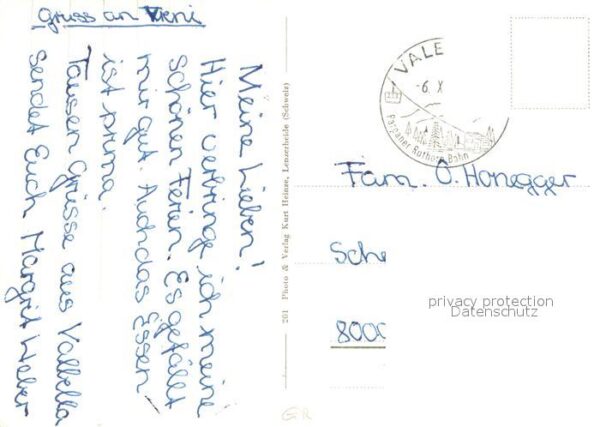 Gruss an Vreni
Meine Lieben!
Hier verbringe ich meine
schönen Ferien. Es gefällt
mir gut. Auch das Essen
ist prima.
Tausen Grüsse aus Valbella
sendet Euch Margrit Weber
201 Photo & Verlag Kurt Heinze, Lenzerheide (Schweiz)
VALBE
-6. X
Parpaner Rothorn-Bahn
Fam. O. Honegger
Sche
8000
privacy protection
Datenschutz
GR